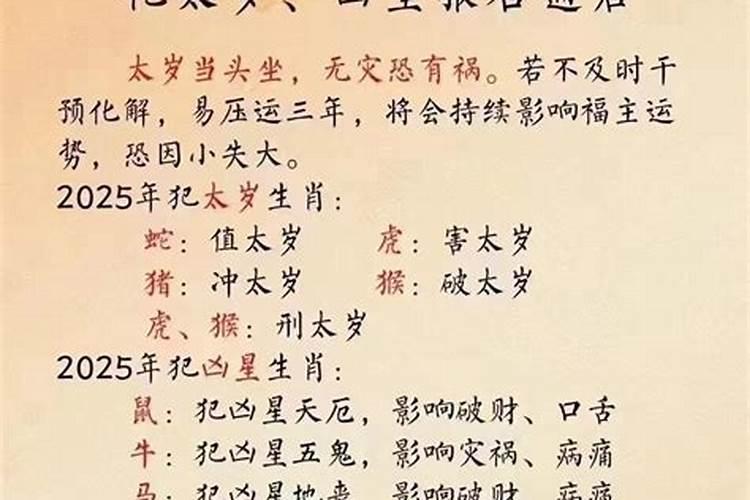 太岁当头坐，无灾恐有祸。若不及时干
预化解，易压运三年，将会持续影响福主运
势，恐因小失大。
2025年犯太岁生肖：
蛇：值太岁 虎：害太岁
猪：冲太岁 猴：破太岁
虎、猴：刑太岁
2025年犯凶星生肖：
鼠：犯凶星天厄，影响破财、口舌
牛：犯凶星五鬼，影响灾祸、病痛